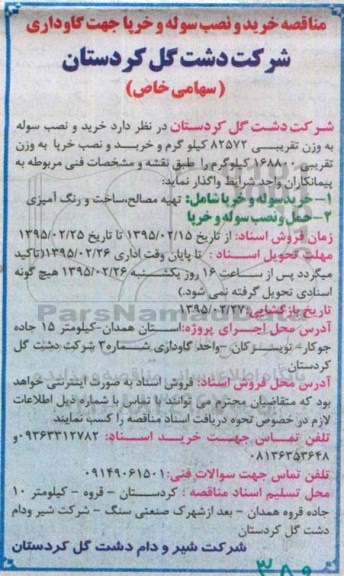 مناقصه خرید و نصب سوله و خرپا جهت گاوداری
شرکت دشت گل کردستان
(سهامی خاص)
شرکت دشت گل کردستان در نظر دارد خرید و نصب سوله
به وزن تقریبی ۸۲۵۷۲ کیلو گرم و خرید و نصب خرپا به وزن
تقریبی ۱۶۸۸۰۰ کیلوگرم را طبق نقشه و مشخصات فنی مربوطه به
پیمانکاران واجد شرایط واگذار نماید:
۱- خرید سوله و خرپا شامل: تهیه مصالح،ساخت و رنگ آمیزی
۲-حمل و نصب سوله و خرپا
زمان فروش اسناد: از تاریخ ۱۳۹۵/۰۲/۱۵ تا تاریخ ۱۳۹۵/۰۲/۲۵
مهلت تحویل اسناد : تا پایان وقت اداری ۱۳۹۵/۰۲/۲۶(تاکید
میگردد پس از ساعت ۱۶ روز یکشنبه ۱۳۹۵/۰۲/۲۶ هیچ گونه
اسنادی تحویل گرفته نمی شود.)
تاریخ بازگشایی: ۱۳۹۵/۰۲/۲۷
آدرس محل اجرای پروژه:استان همدان-کیلومتر ۱۵ جاده
جوکار- تویسرکان -واحد گاوداری شماره۳ شرکت دشت گل
کردستان
آدرس محل فروش اسناد: فروش اسناد به صورت اینترنتی خواهد
بود که متقاضیان محترم می توانند با تماس با شماره ذیل اطلاعات
لازم در خصوص نحوه دریافت اسناد مناقصه را کسب نمایند
تلفن تماس جهت خرید اسناد: ۰۹۳۶۳۳۱۲۷۸۲و
۰۸۱۳۶۳۵۳۶۴۸
تلفن تماس جهت سوالات فنی: ۰۹۱۴۹۰۶۱۵۰۱
محل تسلیم اسناد مناقصه : کردستان - قروه - کیلومتر ۱۰
جاده قروه همدان - بعد ازشهرک صنعتی سنگ - شرکت شیر ودام
دشت گل کردستان
شرکت شیر و دام دشت گل کردستان
ParsNamadData